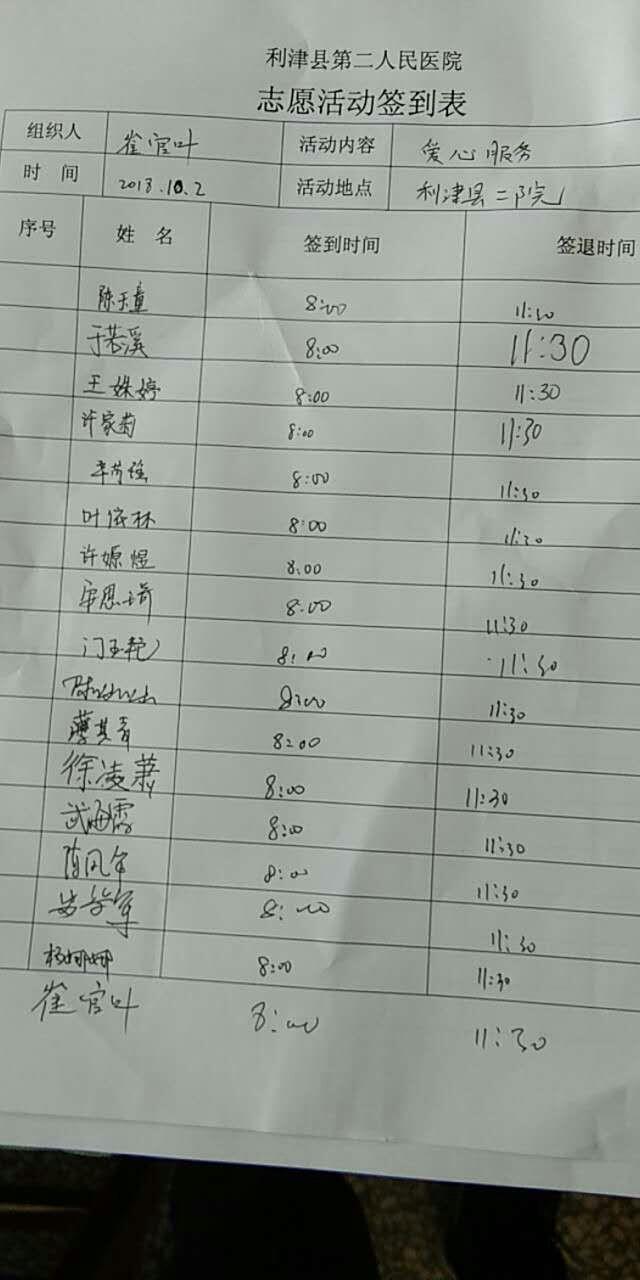 利津县第二人民医院
志愿活动签到表
组织人 崔官叶 活动内容 爱心服务
时 间 2018.10.2 活动地点 利津县二院
序号 姓 名 签到时间 签退时间
陈天童 8:00 11:30
于若溪 8:00 11:30
王姝婷 8:00 11:30
许家菊 8:00 11:30
8:00 11:30
叶依林 8:00 11:30
许嫄煜 8:00 11:30
8:00 11:30
门玉艳 8:00 11:30
8:00 11:30
薄其青 8:00 11:30
徐凌萧 8:00 11:30
8:00 11:30
8:00 11:30
8:00 11:30
杨娜娜 8:00 11:30
崔官叶 8:00 11:30